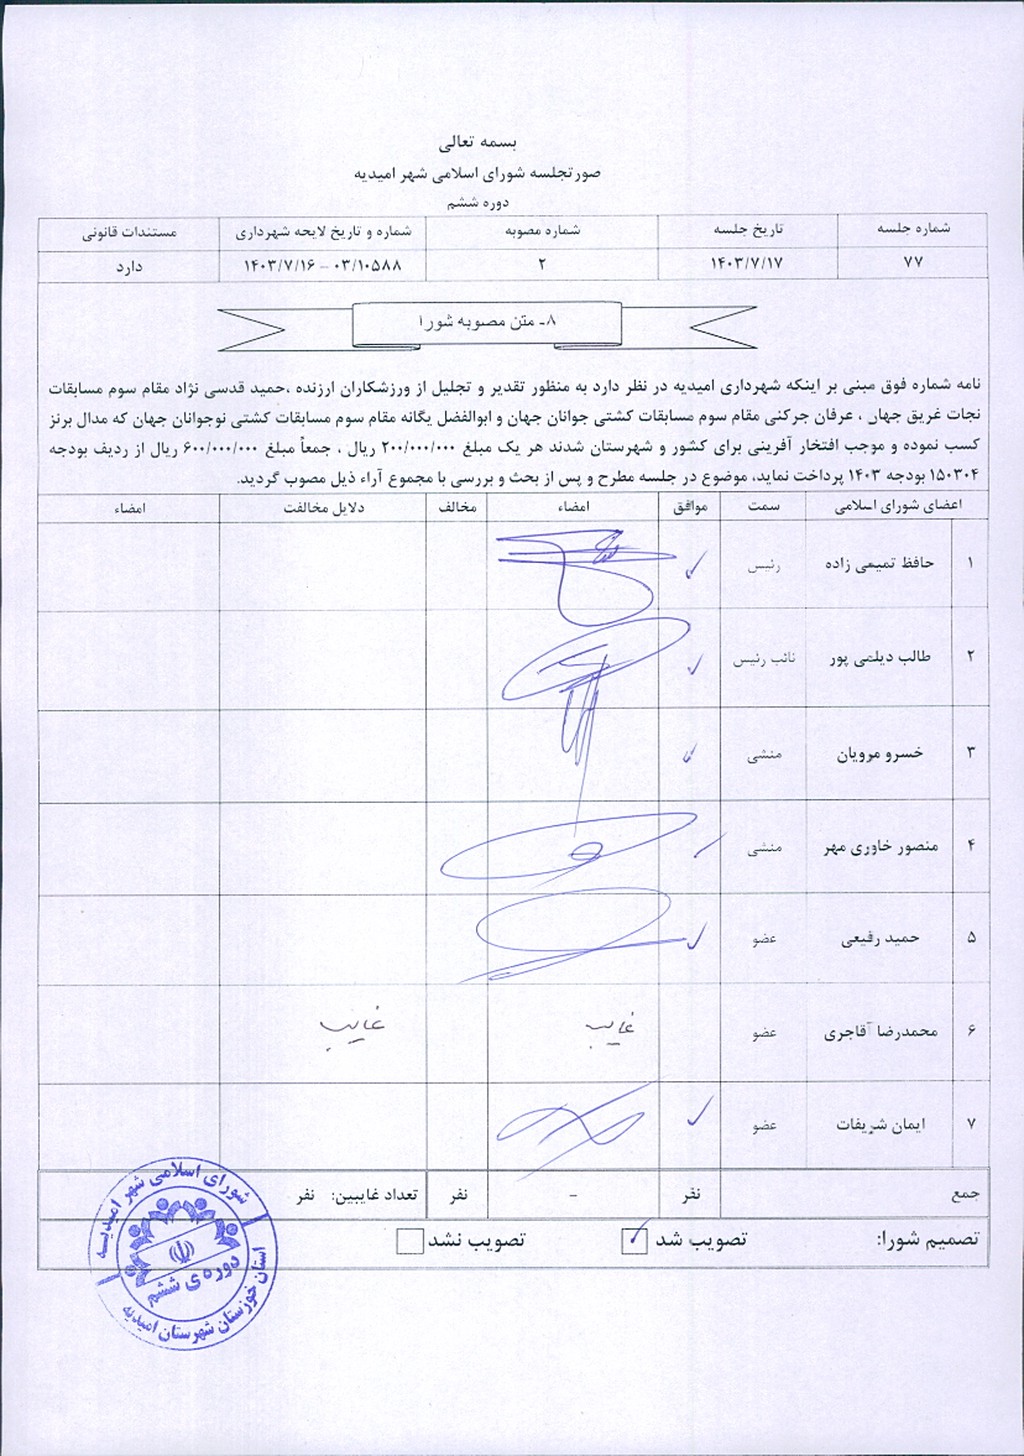 بسمه تعالی
صورتجلسه شورای اسلامی شهر امیدیه
دوره ششم
شماره جلسه تاریخ جلسه شماره مصوبه شماره و تاریخ لایحه شهرداری مستندات قانونی
۷۷ ۱۴۰۳/۷/۱۷ ۲ ۰۳/۱۰۵۸۸ – ۱۴۰۳/۷/۱۶ دارد
۸- متن مصوبه شورا
نامه شماره فوق مبنی بر اینکه شهرداری امیدیه در نظر دارد به منظور تقدیر و تجلیل از ورزشکاران ارزنده ،حمید قدسی نژاد مقام سوم مسابقات
نجات غریق جهان ، عرفان جرکنی مقام سوم مسابقات کشتی جوانان جهان و ابوالفضل یگانه مقام سوم مسابقات کشتی نوجوانان جهان که مدال برنز
کسب نموده و موجب افتخار آفرینی برای کشور و شهرستان شدند هر یک مبلغ ۲۰۰/۰۰۰/۰۰۰ ریال ، جمعاً مبلغ ۶۰۰/۰۰۰/۰۰۰ ریال از ردیف بودجه
۱۵۰۳۰۴ بودجه ۱۴۰۳ پرداخت نماید، موضوع در جلسه مطرح و پس از بحث و بررسی با مجموع آراء ذیل مصوب گردید.
اعضای شورای اسلامی سمت موافق امضاء مخالف دلایل مخالفت امضاء
۱ حافظ تمیمی زاده رئیس
۲ طالب دیلمی پور نائب رئیس
۳ خسرو مرویان منشی
۴ منصور خاوری مهر منشی
۵ حمید رفیعی عضو
۶ محمدرضا آقاجری عضو غایب غایب
۷ ایمان شریفات عضو
جمع نفر - نفر تعداد غایبین: نفر
تصمیم شورا: تصویب شد تصویب نشد
شورای اسلامی شهر امیدیه
دوره ی ششم
استان خوزستان شهرستان امیدیه